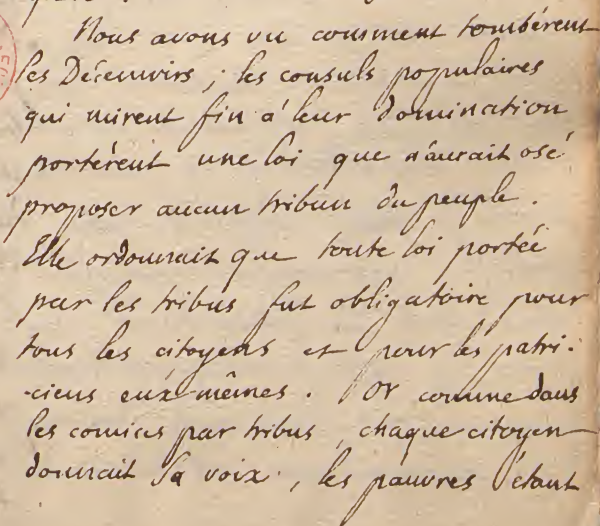 Nous avons vu comment tombérent
les Décemvirs ; les consuls populaires
qui mirent fin à leur domination
portérent une loi que n'aurait osé
proposer aucun tribun du peuple.
Elle ordonnait que toute loi portée
par les tribus fut obligatoire pour
tous les citoyens et pour les patri-
-ciens eux-mêmes. Or comme dans
les comices par tribus, chaque citoyen
donnait sa voix, les pauvres étant